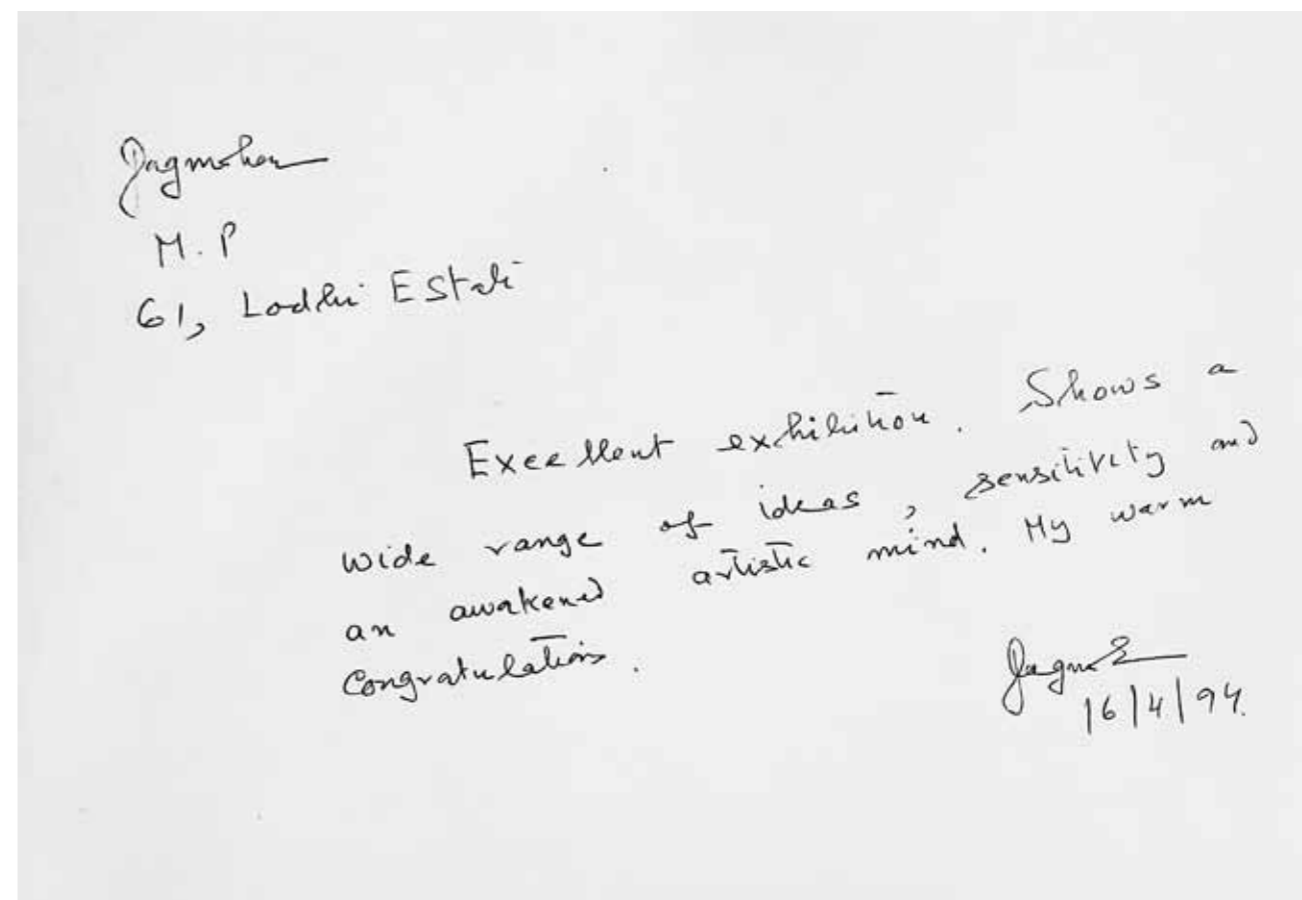 Jagmohan
M.P
61, Lodhi Estate
Excellent exhibition. Shows a
wide range of ideas, sensitivity and
an awakened artistic mind. My warm
Congratulations.
Jagmohan
16/4/94.